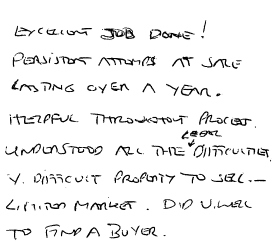 EXCELLENT JOB DONE!
PERSISTENT ATTEMPTS AT SALE
LASTING OVER A YEAR.
HELPFUL THROUGHOUT PROCESS.
UNDERSTOOD ALL THE LEGAL DIFFICULTIES
V. DIFFICULT PROPERTY TO SELL -
LIMITED MARKET. DID V. WELL
TO FIND A BUYER.